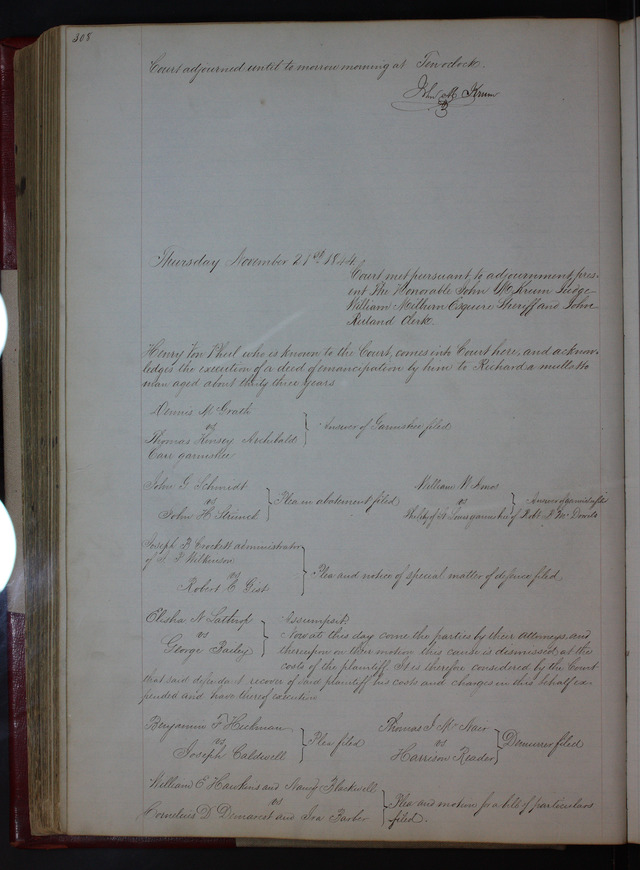 308
Court adjourned until to morrow morning at Ten oclock.
John M Krum
Thursday November 21st 1844
Court met pursuant to adjournment, pres-
ent The Honorable John M. Krum Judge
William Milburn Esquire Sheriff and John
Ruland Clerk
Henry Von Phul who is known to the Court, comes into Court here, and acknow-
ledges the execution of a deed of emancipation by him to Richard a mulatto
man aged about thirty three years
Dennis McGrath
vs
Thomas Kensey Archibald
Carr garnishee
Answer of Garnishee filed
John G Schmidt
vs
John H Strimel
Plea in abatement filed
William W
vs
of St Louis garnishee of Robt J McDowell
Answer of garnishee filed
Joseph B Crockett administrator
of Wilkinson
vs
Robert E Gist
Plea and notice of special matter of defence filed
Elisha N Lathrop
vs
George Bailey
Assumpsit
Now at this day come the parties by their Attorneys, and
thereupon on their motion this cause is dismissed at the
costs of the plaintiff. It is therefore considered by the Court
that said defendant recover of said plaintiff his costs and charges in this behalf ex-
pended and have thereof execution
Benjamin F Hickman
vs
Joseph Caldwell
Plea filed
Thomas J
vs
Harrison Reader
Demurrer filed
William E Hawkins and Nancy Blackwell
vs
Cornelius D Demarest and Ira Barber
Plea and motion for a bill of particulars
filed.